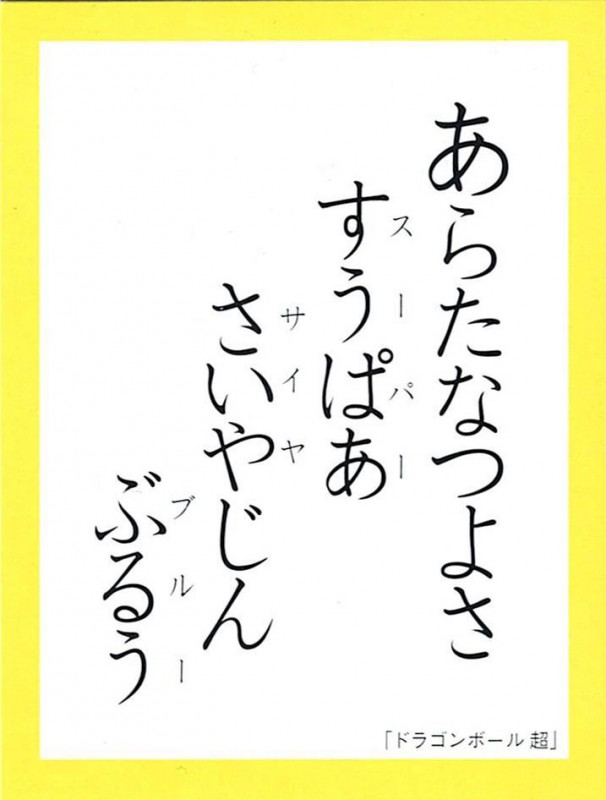 あらたなつよさ
すうぱあ
スーパー
さいやじん
サイヤ
ぶるぅ
ブルー
「ドラゴンボール 超」